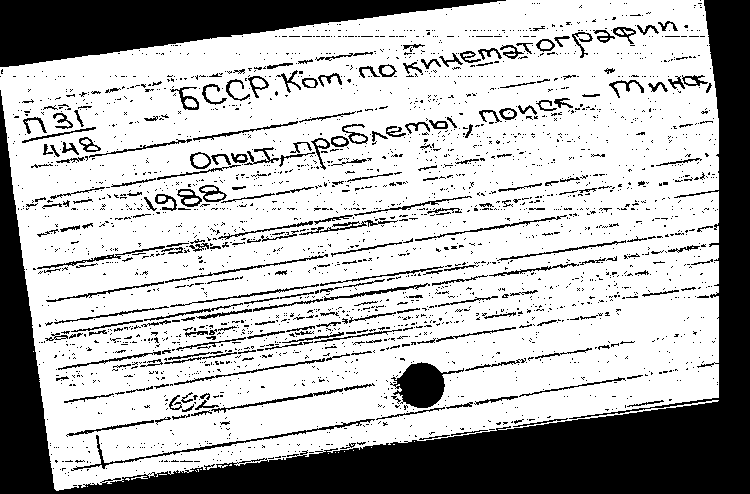 БССР. Ком. по кинематографии.
П 31
448
Опыт, проблемы, поиск. - Минск,
1988 -
652